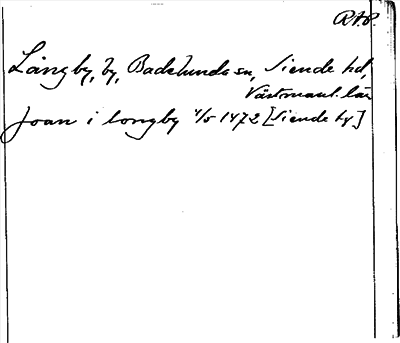 RAP
Långby, by, Badelunda sn, Siende hd,
Västmanl. län
Joan i longby 4/5 1472 [Siende hd]